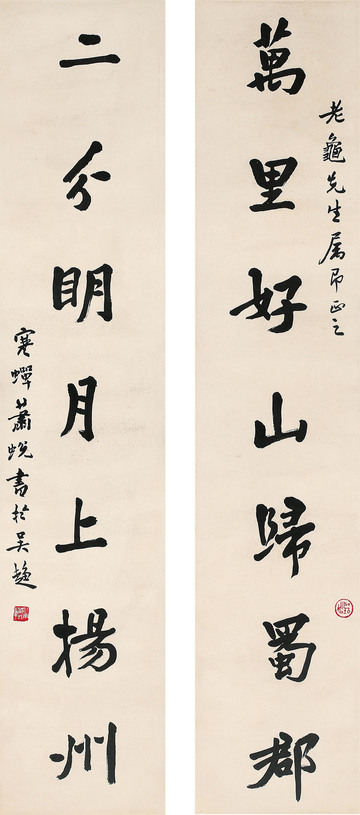 萬里好山歸蜀郡
老龜先生屬即正之
二分明月上揚州
寒蟬蕭蛻書於吳趨